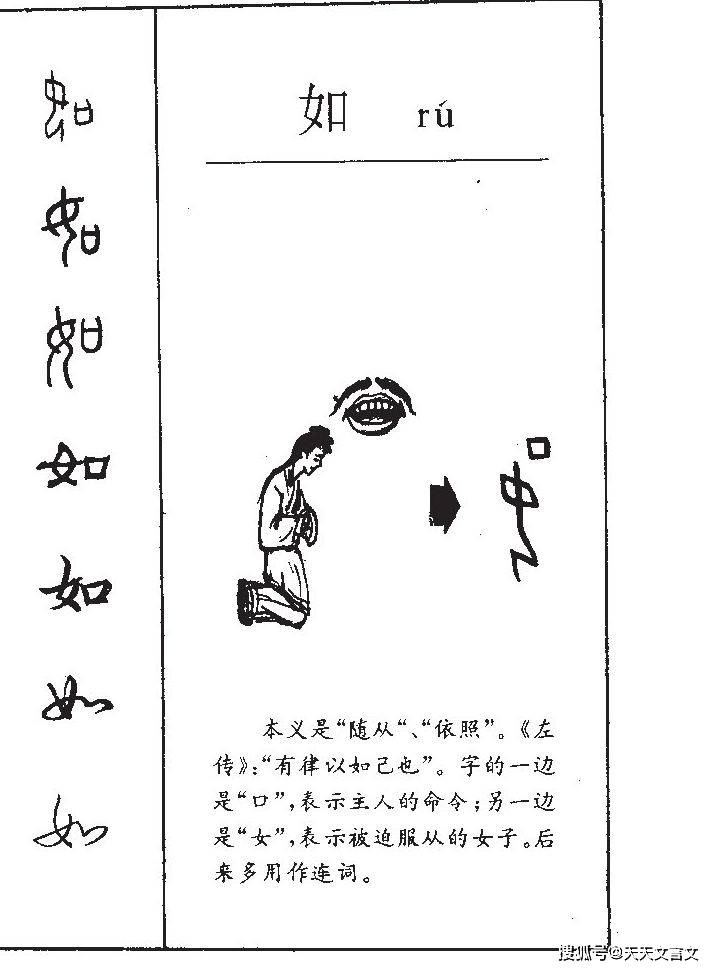 如 rú
如
如
如
如
如
如
如
本义是“随从“、“依照”。《左
传》:“有律以如己也”。字的一边
是“口”,表示主人的命令;另一边
是“女”,表示被迫服从的女子。后
来多用作连词。
搜狐号@天天文言文